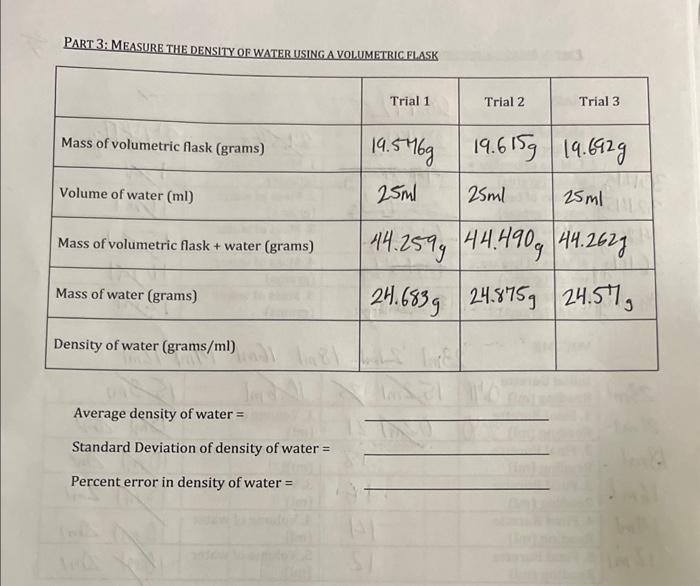 PART 3: MEASURE THE DENSITY OF WATER USING A VOLUMETRIC FLASK
Trial 1 Trial 2 Trial 3
Mass of volumetric flask (grams) 19.576g 19.615g 19.692g
Volume of water (ml) 25ml 25ml 25ml
Mass of volumetric flask + water (grams) 44.259g 44.490g 44.262g
Mass of water (grams) 24.683g 24.875g 24.57g
Density of water (grams/ml)
Average density of water =
Standard Deviation of density of water =
Percent error in density of water =